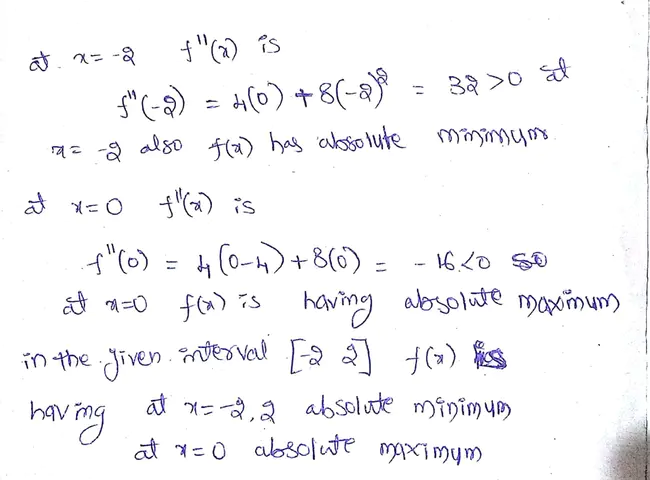 at x = -2 f"(x) is
f"(-2) = 4(0) + 8(-2)² = 32 > 0 at
x = -2 also f(x) has absolute minimum
at x = 0 f"(x) is
f"(0) = 4(0-4) + 8(0) = -16 < 0 so
at x=0 f(x) is having absolute maximum
in the given interval [-2 2] f(x) is
having at x = -2, 2 absolute minimum
at x = 0 absolute maximum